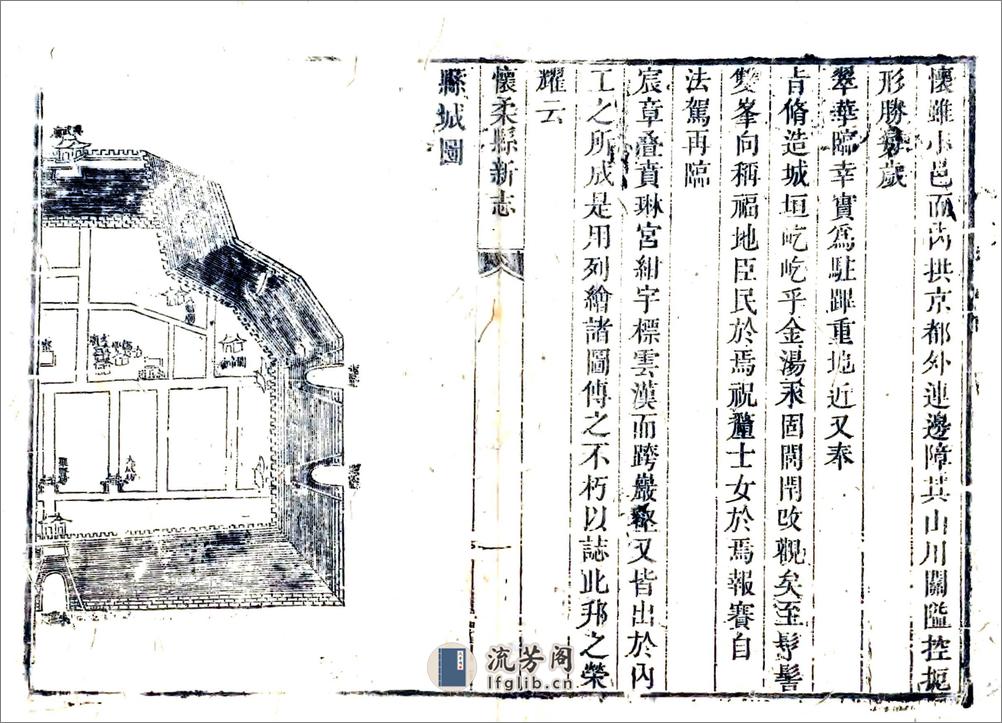 懷雖小邑而內拱京都外連邊障其山川關隘控扼
形勝每歲
翠華臨幸實爲駐蹕重地近又奉
旨脩造城垣屹屹乎金湯永固閭閈改觀矣至髻髻
雙峯向稱福地臣民於焉祝釐士女於焉報賽自
法駕再臨
宸章疊賁琳宮紺宇標雲漢而跨巖壑又皆出於內
工之所成是用列繪諸圖傳之不朽以誌此邦之榮
耀云
懷柔縣新志
一
縣城圖
流芳阁
lfglib.cn